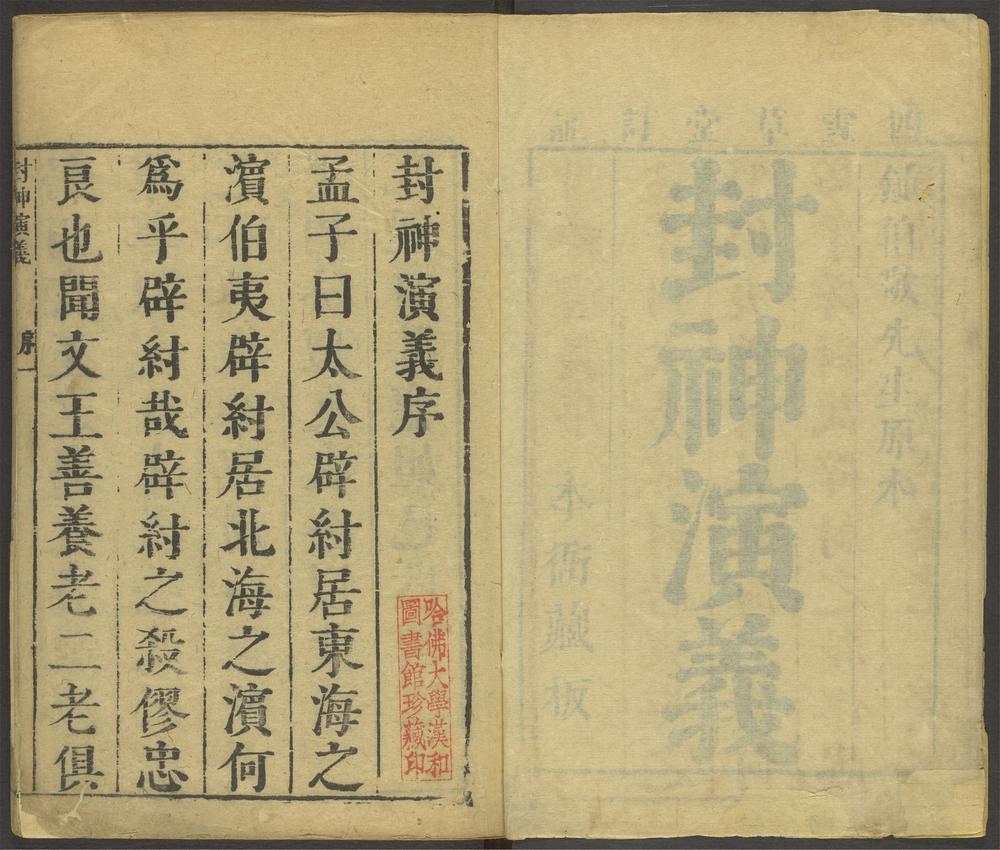 四雪草堂訂証
鍾伯敬先生原本
封神演義
本衙藏板
封神演義序
哈佛大學漢和
圖書館珍藏印
孟子曰太公辟紂居東海之
濱伯夷辟紂居北海之濱何
爲乎辟紂哉辟紂之殺僇忠
良也聞文王善養老二老俱
封神演義 序 一